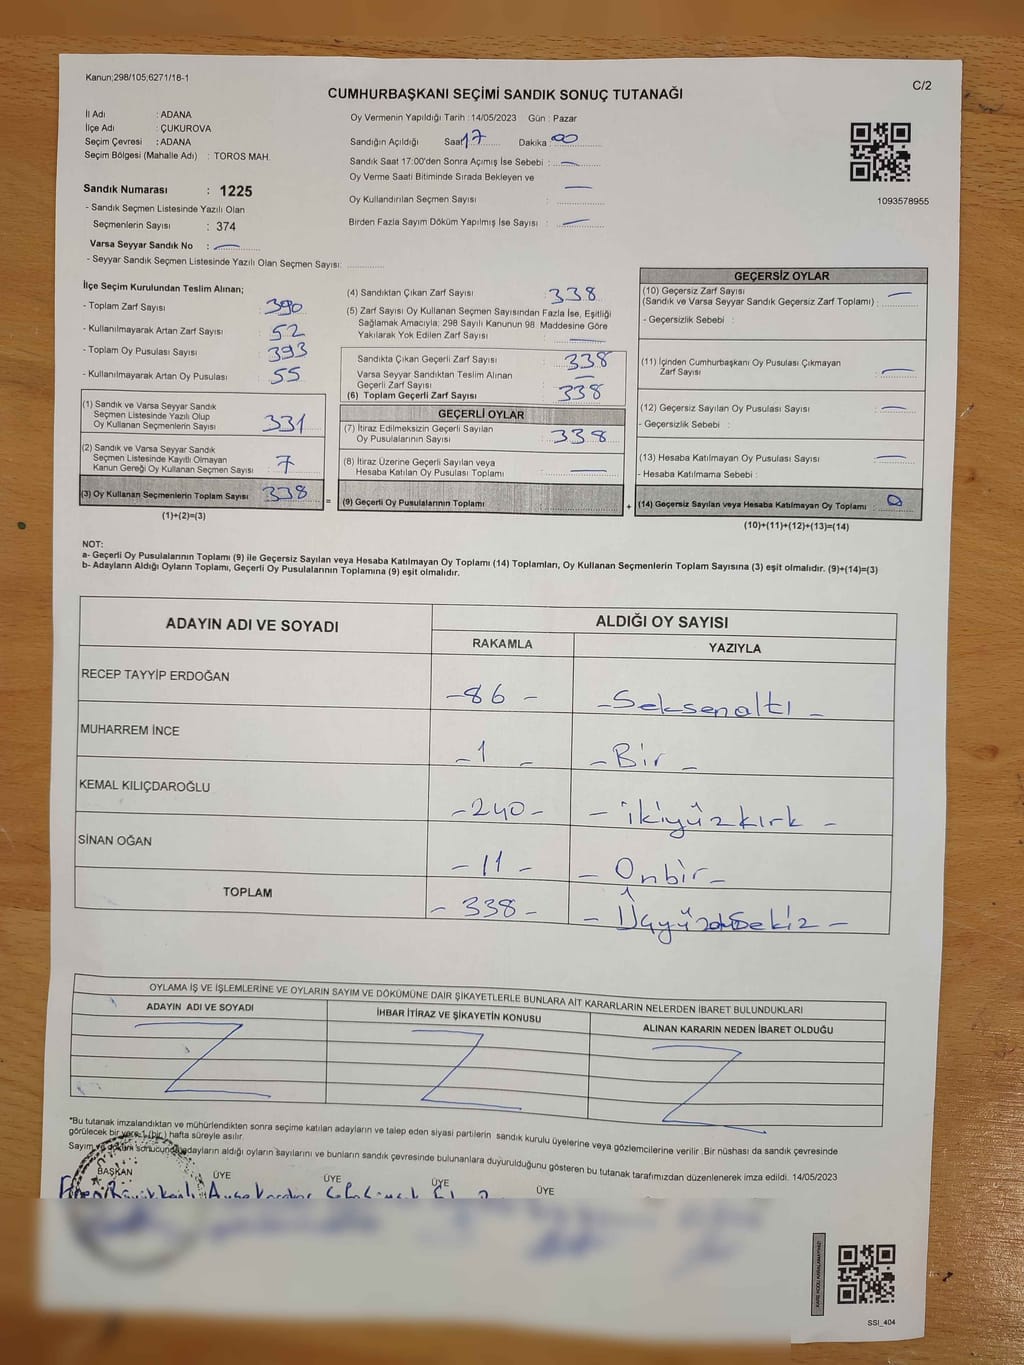 Kanun;298/105;6271/18-1
C/2
CUMHURBAŞKANI SEÇİMİ SANDIK SONUÇ TUTANAĞI
İl Adı : ADANA
İlçe Adı : ÇUKUROVA
Seçim Çevresi : ADANA
Seçim Bölgesi (Mahalle Adı) : TOROS MAH.
Sandık Numarası : 1225
- Sandık Seçmen Listesinde Yazılı Olan
Seçmenlerin Sayısı : 374
Varsa Seyyar Sandık No : —
- Seyyar Sandık Seçmen Listesinde Yazılı Olan Seçmen Sayısı:
Oy Vermenin Yapıldığı Tarih : 14/05/2023 Gün : Pazar
Sandığın Açıldığı Saat 17 Dakika 00
Sandık Saat 17:00'den Sonra Açımış İse Sebebi : —
Oy Verme Saati Bitiminde Sırada Bekleyen ve —
Oy Kullandırılan Seçmen Sayısı :
Birden Fazla Sayım Döküm Yapılmış İse Sayısı : —
1093578955
İlçe Seçim Kurulundan Teslim Alınan;
- Toplam Zarf Sayısı : 390
- Kullanılmayarak Artan Zarf Sayısı : 52
- Toplam Oy Pusulası Sayısı : 393
- Kullanılmayarak Artan Oy Pusulası : 55
(1) Sandık ve Varsa Seyyar Sandık
Seçmen Listesinde Yazılı Olup
Oy Kullanan Seçmenlerin Sayısı : 331
(2) Sandık ve Varsa Seyyar Sandık
Seçmen Listesinde Kayıtlı Olmayan
Kanun Gereği Oy Kullanan Seçmen Sayısı : 7
(3) Oy Kullanan Seçmenlerin Toplam Sayısı : 338
(1)+(2)=(3)
=
(4) Sandıktan Çıkan Zarf Sayısı : 338
(5) Zarf Sayısı Oy Kullanan Seçmen Sayısından Fazla İse, Eşitliği
Sağlamak Amacıyla; 298 Sayılı Kanunun 98. Maddesine Göre
Yakılarak Yok Edilen Zarf Sayısı : —
Sandıkta Çıkan Geçerli Zarf Sayısı : 338
Varsa Seyyar Sandıktan Teslim Alınan
Geçerli Zarf Sayısı : —
(6) Toplam Geçerli Zarf Sayısı : 338
GEÇERLİ OYLAR
(7) İtiraz Edilmeksizin Geçerli Sayılan
Oy Pusulalarının Sayısı : 338
(8) İtiraz Üzerine Geçerli Sayılan veya
Hesaba Katılan Oy Pusulası Toplamı : —
(9) Geçerli Oy Pusulalarının Toplamı
+
GEÇERSİZ OYLAR
(10) Geçersiz Zarf Sayısı
(Sandık ve Varsa Seyyar Sandık Geçersiz Zarf Toplamı) : —
- Geçersizlik Sebebi :
(11) İçinden Cumhurbaşkanı Oy Pusulası Çıkmayan
Zarf Sayısı : —
(12) Geçersiz Sayılan Oy Pusulası Sayısı : —
- Geçersizlik Sebebi :
(13) Hesaba Katılmayan Oy Pusulası Sayısı : —
- Hesaba Katılmama Sebebi :
(14) Geçersiz Sayılan veya Hesaba Katılmayan Oy Toplamı : 0
(10)+(11)+(12)+(13)=(14)
NOT:
a- Geçerli Oy Pusulalarının Toplamı (9) ile Geçersiz Sayılan veya Hesaba Katılmayan Oy Toplamı (14) Toplamları, Oy Kullanan Seçmenlerin Toplam Sayısına (3) eşit olmalıdır. (9)+(14)=(3)
b- Adayların Aldığı Oyların Toplamı, Geçerli Oy Pusulalarının Toplamına (9) eşit olmalıdır.
ADAYIN ADI VE SOYADI
ALDIĞI OY SAYISI
RAKAMLA YAZIYLA
RECEP TAYYİP ERDOĞAN -86- -Seksenaltı-
MUHARREM İNCE -1- -Bir-
KEMAL KILIÇDAROĞLU -240- -ikiyüzkırk-
SİNAN OĞAN -11- -Onbir-
TOPLAM -338-
OYLAMA İŞ VE İŞLEMLERİNE VE OYLARIN SAYIM VE DÖKÜMÜNE DAİR ŞİKAYETLERLE BUNLARA AİT KARARLARIN NELERDEN İBARET BULUNDUKLARI
ADAYIN ADI VE SOYADI İHBAR İTİRAZ VE ŞİKAYETİN KONUSU ALINAN KARARIN NEDEN İBARET OLDUĞU
*Bu tutanak imzalandıktan ve mühürlendikten sonra seçime katılan adayların ve talep eden siyasi partilerin sandık kurulu üyelerine veya gözlemcilerine verilir .Bir nüshası da sandık çevresinde
görülecek bir yere 1 (bir) hafta süreyle asılır.
Sayım ve döküm sonucunda adayların aldığı oyların sayılarını ve bunların sandık çevresinde bulunanlara duyurulduğunu gösteren bu tutanak tarafımızdan düzenlenerek imza edildi. 14/05/2023
BAŞKAN ÜYE ÜYE ÜYE ÜYE
SSI_404